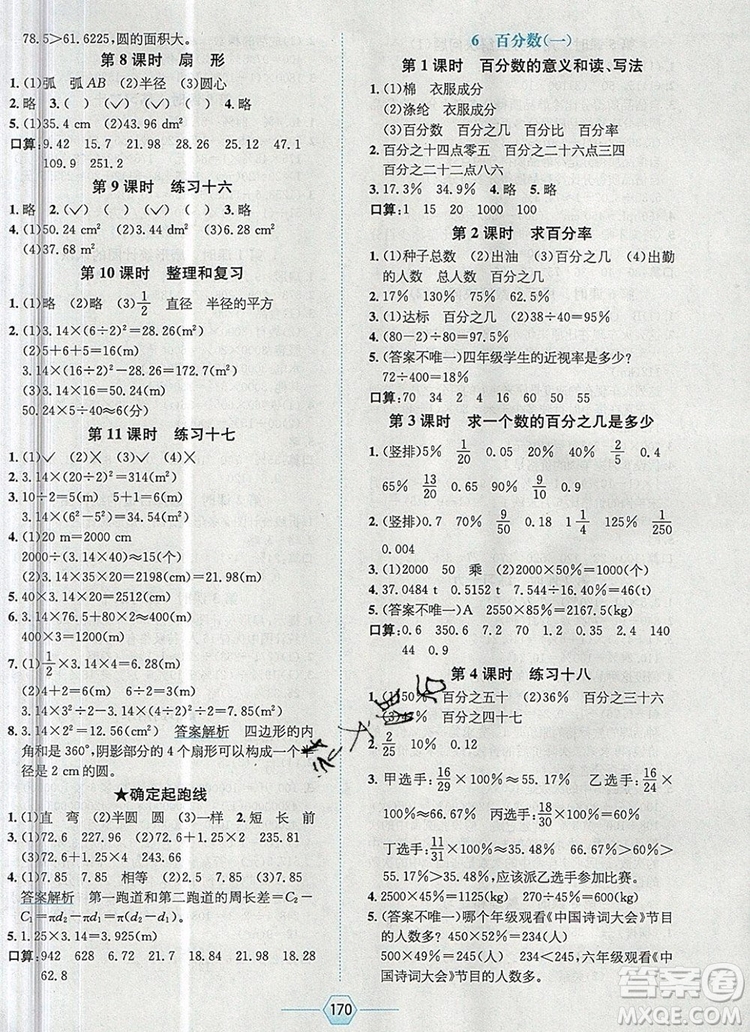 78.5>61.6225,圆的面积大。
第 8 课时 扇 形
1. (1)弧 弧AB (2)半径 (3)圆心
2. 略 3. ( ) (✓) (✓) ( ) 4. 略
5. (1)35.4 cm (2)22.92 dm²
口算: 9.42 15.7 21.98 28.26 25.12 47.1
109.9 251.2
第 9 课时 练习十六
1. 略 2. (✓) ( ) (✓) 3. 略
4. (1)50.24 cm² (2)9.63 dm² (3)6.28 cm²
(4)37.68 m²
第 10 课时 整理和复习
1. (1)略 (2)略 (3)1/2 直径 半径的平方
2. (1)3.14×(6÷2)²=28.26(m²)
(2)5+6+5=16(m)
3. 3.14×(16÷2)²=50.24(m²)
3.14×(6÷2)²=28.26(m²)
(2)3.14×16=50.24(m)
50.24×5÷40≈6(分)
第 11 课时 练习十七
1. (1)✓ (2)✕ (3)✓ (4)✕
2. 3.14×(20÷2)²=314(m²)
3. 10÷2=5(m) 5+1=6(m)
3.14×(6²−5²)=34.54(m²)
4. (1)20 m=2000 cm
2000÷(3.14×40)≈15(个)
(2)3.14×35×20=2198(cm)=21.98(m)
5. 3.14×(2÷2)²×10=31.4(m²)
6. 3.14×76.5+3.14×51=400.35(cm)
400×3=1200(m)
7. (1)1/2×3.14×(8÷2)²=25.12(m²)
(2)4+2=6(m)
3.14×6=18.84(m)
8. 3.14×2²=12.56(cm²) 答案解析 四边形的内
角和是360°,阴影部分的 4 个扇形可以构成一个半
径是 2 cm 的圆。
★确定起跑线
1. (1)直 弯 (2)半圆 圆 (3)一样 2. 短 长 前
3. (1)72.6 227.96 (2)72.6 1.25×2 235.81
(3)72.6 1.25×4 243.66
4. (1)7.85 7.85 相等 (2)7.85 7.85
答案解析 第一跑道和第二跑道的周长差=C₂−
C₁=πd₂−πd₁=π(d₂−d₁)
5. 1.25×3.14=3.925(m) 3.925×2=7.85(m)
口算: 942 628 314 15.7 37.68 31.4 18.84
62.8
6 百分数(一)
第 1 课时 百分数的意义和读、写法
1. (1)棉 衣服成分
(2)涤纶 衣服成分
(3)百分数 百分之几 百分比 百分率
2. 百分之十四点零五 百分之二十六点三四
百分之二十二点八六
3. 17.3% 0.9% 4. 略 5. 略
口算: 1 15 20 1000 100
第 2 课时 求百分率
1. (1)种子总数 (2)出油 (3)百分之几 (4)出勤
的人数 总人数 百分之几
2. 17% 130% 75% 62.5%
3. (1)达标 百分之几 (2)38÷40=95%
4. (80−2)÷80=97.5%
5. (答案不唯一)四年级学生的近视率是多少?
72÷400=18%
口算: 10 34 2 4 16 60 70 7
第 3 课时 求一个数的百分之几是多少
1. (竖排)5% 1/20 30% 0.3 40% 2/5 0.4
65% 13/20 0.65 90% 9/10 0.15 3/20
2. (竖排)0.7 70% 9/50 0.18 1/8 0.125 1/250
0.004
3. (1)200 50 乘 (2)2000×25%=500(元)
4. 37.0484 t 0.5152 t 7.544×10%=0.7544(t)
5. (答案不唯一)A 2550×85%=2167.5(kg)
口算: 0.6 350 7.2 70 1.2 20 140 0.45
14.4
第 4 课时 练习十八
1. (1)50% 百分之五十 (2)36% 百分之三十六
(3)47% 百分之四十七
2. 2/25 10% 19% 0.12
3. 甲选手:16/29×100%≈55.17% 乙选手:18/27
×100%≈66.67% 丙选手:14/24×100%≈58.33%
丁选手:11/18×100%≈61.11%
55.17%<58.33%<61.11%<66.67%,
55.17%最小,应该派乙选手参加比赛。
4. 2500×45%=1125(人)
5. (答案不唯一)哪个年级观看《中国诗词大会》节目
的人数多。450×52%=234(人)
500×49%=245(人) 234<245,六年级观看《中
国诗词大会》节目的人数多。
170
答案圈
MXQE.COM